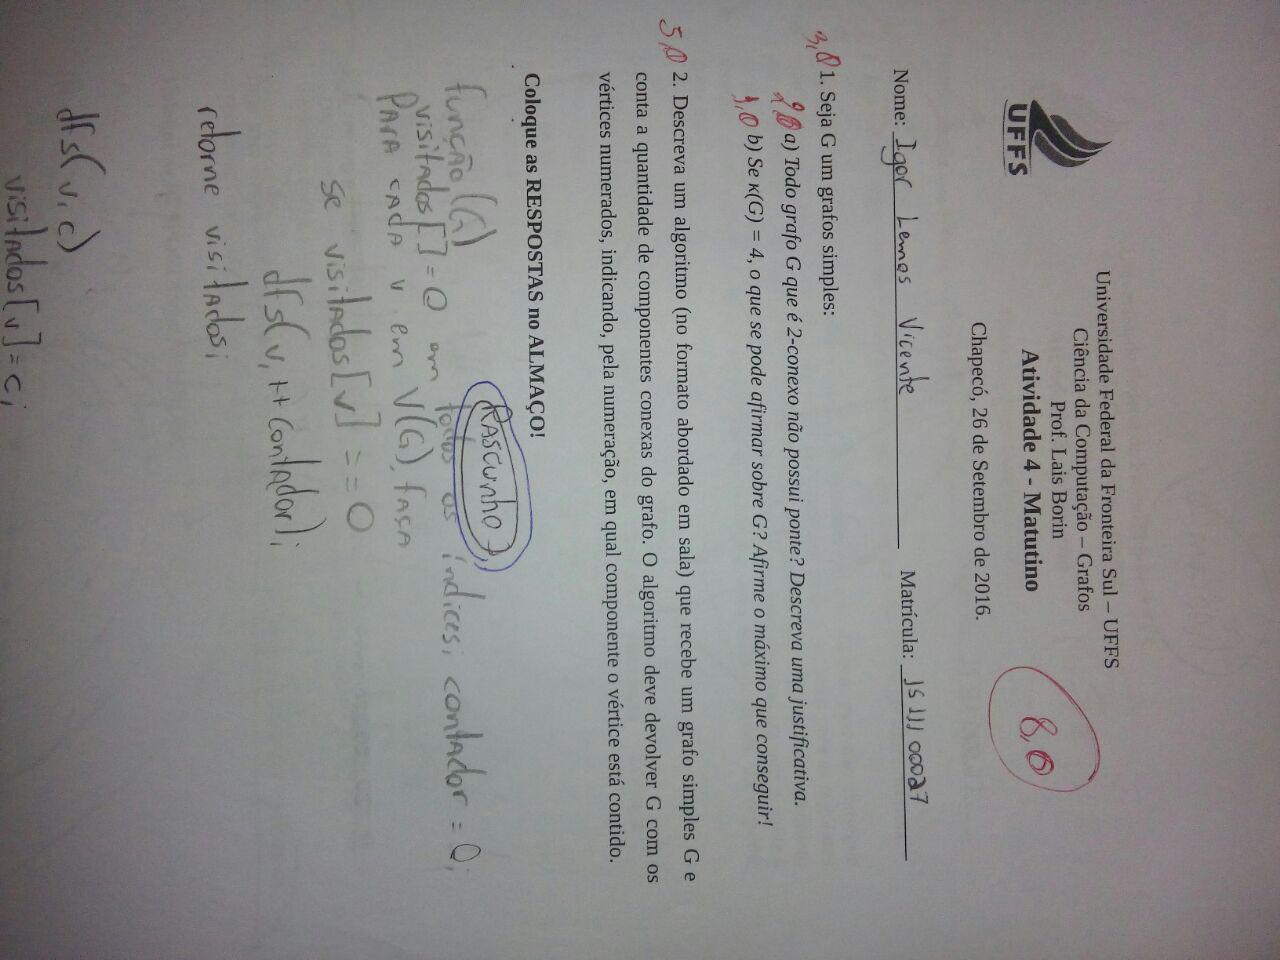 Universidade Federal da Fronteira Sul – UFFS
Ciência da Computação – Grafos
Prof. Lais Borin
Atividade 4 - Matutino
8,0
UFFS
Chapecó, 26 de Setembro de 2016.
Nome: Igor Lemos Vicente Matrícula: 1511100027
3,0 1. Seja G um grafos simples:
2,0 a) Todo grafo G que é 2-conexo não possui ponte? Descreva uma justificativa.
1,0 b) Se κ(G) = 4, o que se pode afirmar sobre G? Afirme o máximo que conseguir!
5,0 2. Descreva um algoritmo (no formato abordado em sala) que recebe um grafo simples G e
conta a quantidade de componentes conexas do grafo. O algoritmo deve devolver G com os
vértices numerados, indicando, pela numeração, em qual componente o vértice está contido.
Coloque as RESPOSTAS no ALMAÇO!
Rascunho
função(G)
visitados[]=0 em todos os índices; contador = 0;
Para cada v em V(G), faça
se visitados[v] == 0
dfs(v, ++contador);
retorne visitados;
dfs(v, c)
visitados[v]=c;